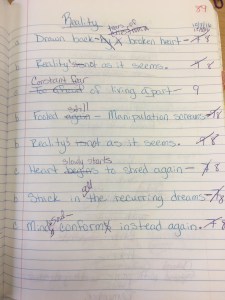 Reality
89
tears of
Drawn back - A broken heart - 8
Reality's not as it seems. 8
Constant fear
To afraid of living apart - 9
still
Fooled again - Manipulation screams - 8
Reality's not as it seems. - 8
slowly starts
Heart begins to shred again - 8
Stuck in the recurring dreams - 8
Mind conforms instead again. 8